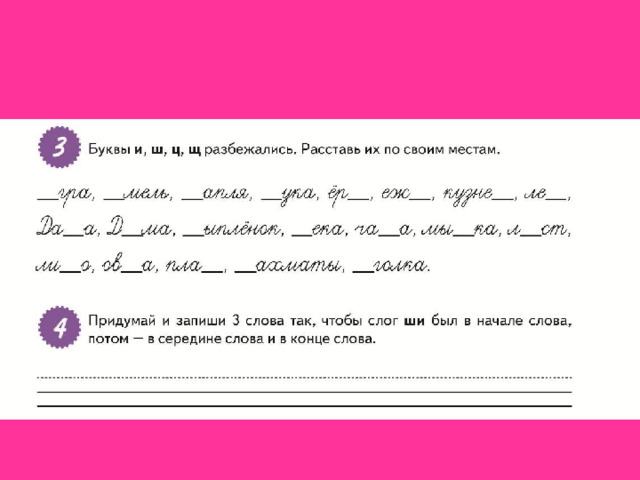 3 Буквы и, ш, ц, щ разбежались. Расставь их по своим местам.
__гра, __мель, __апля, __ука, ёр__, еж__, кузне__, ле__,
Да__а, Д__ма, __ыплёнок, __ека, ча__а, мы__ка, л__ст,
ли__о, ов__а, пла__, __ахматы, __голка.
4 Придумай и запиши 3 слова так, чтобы слог ши был в начале слова,
потом – в середине слова и в конце слова.